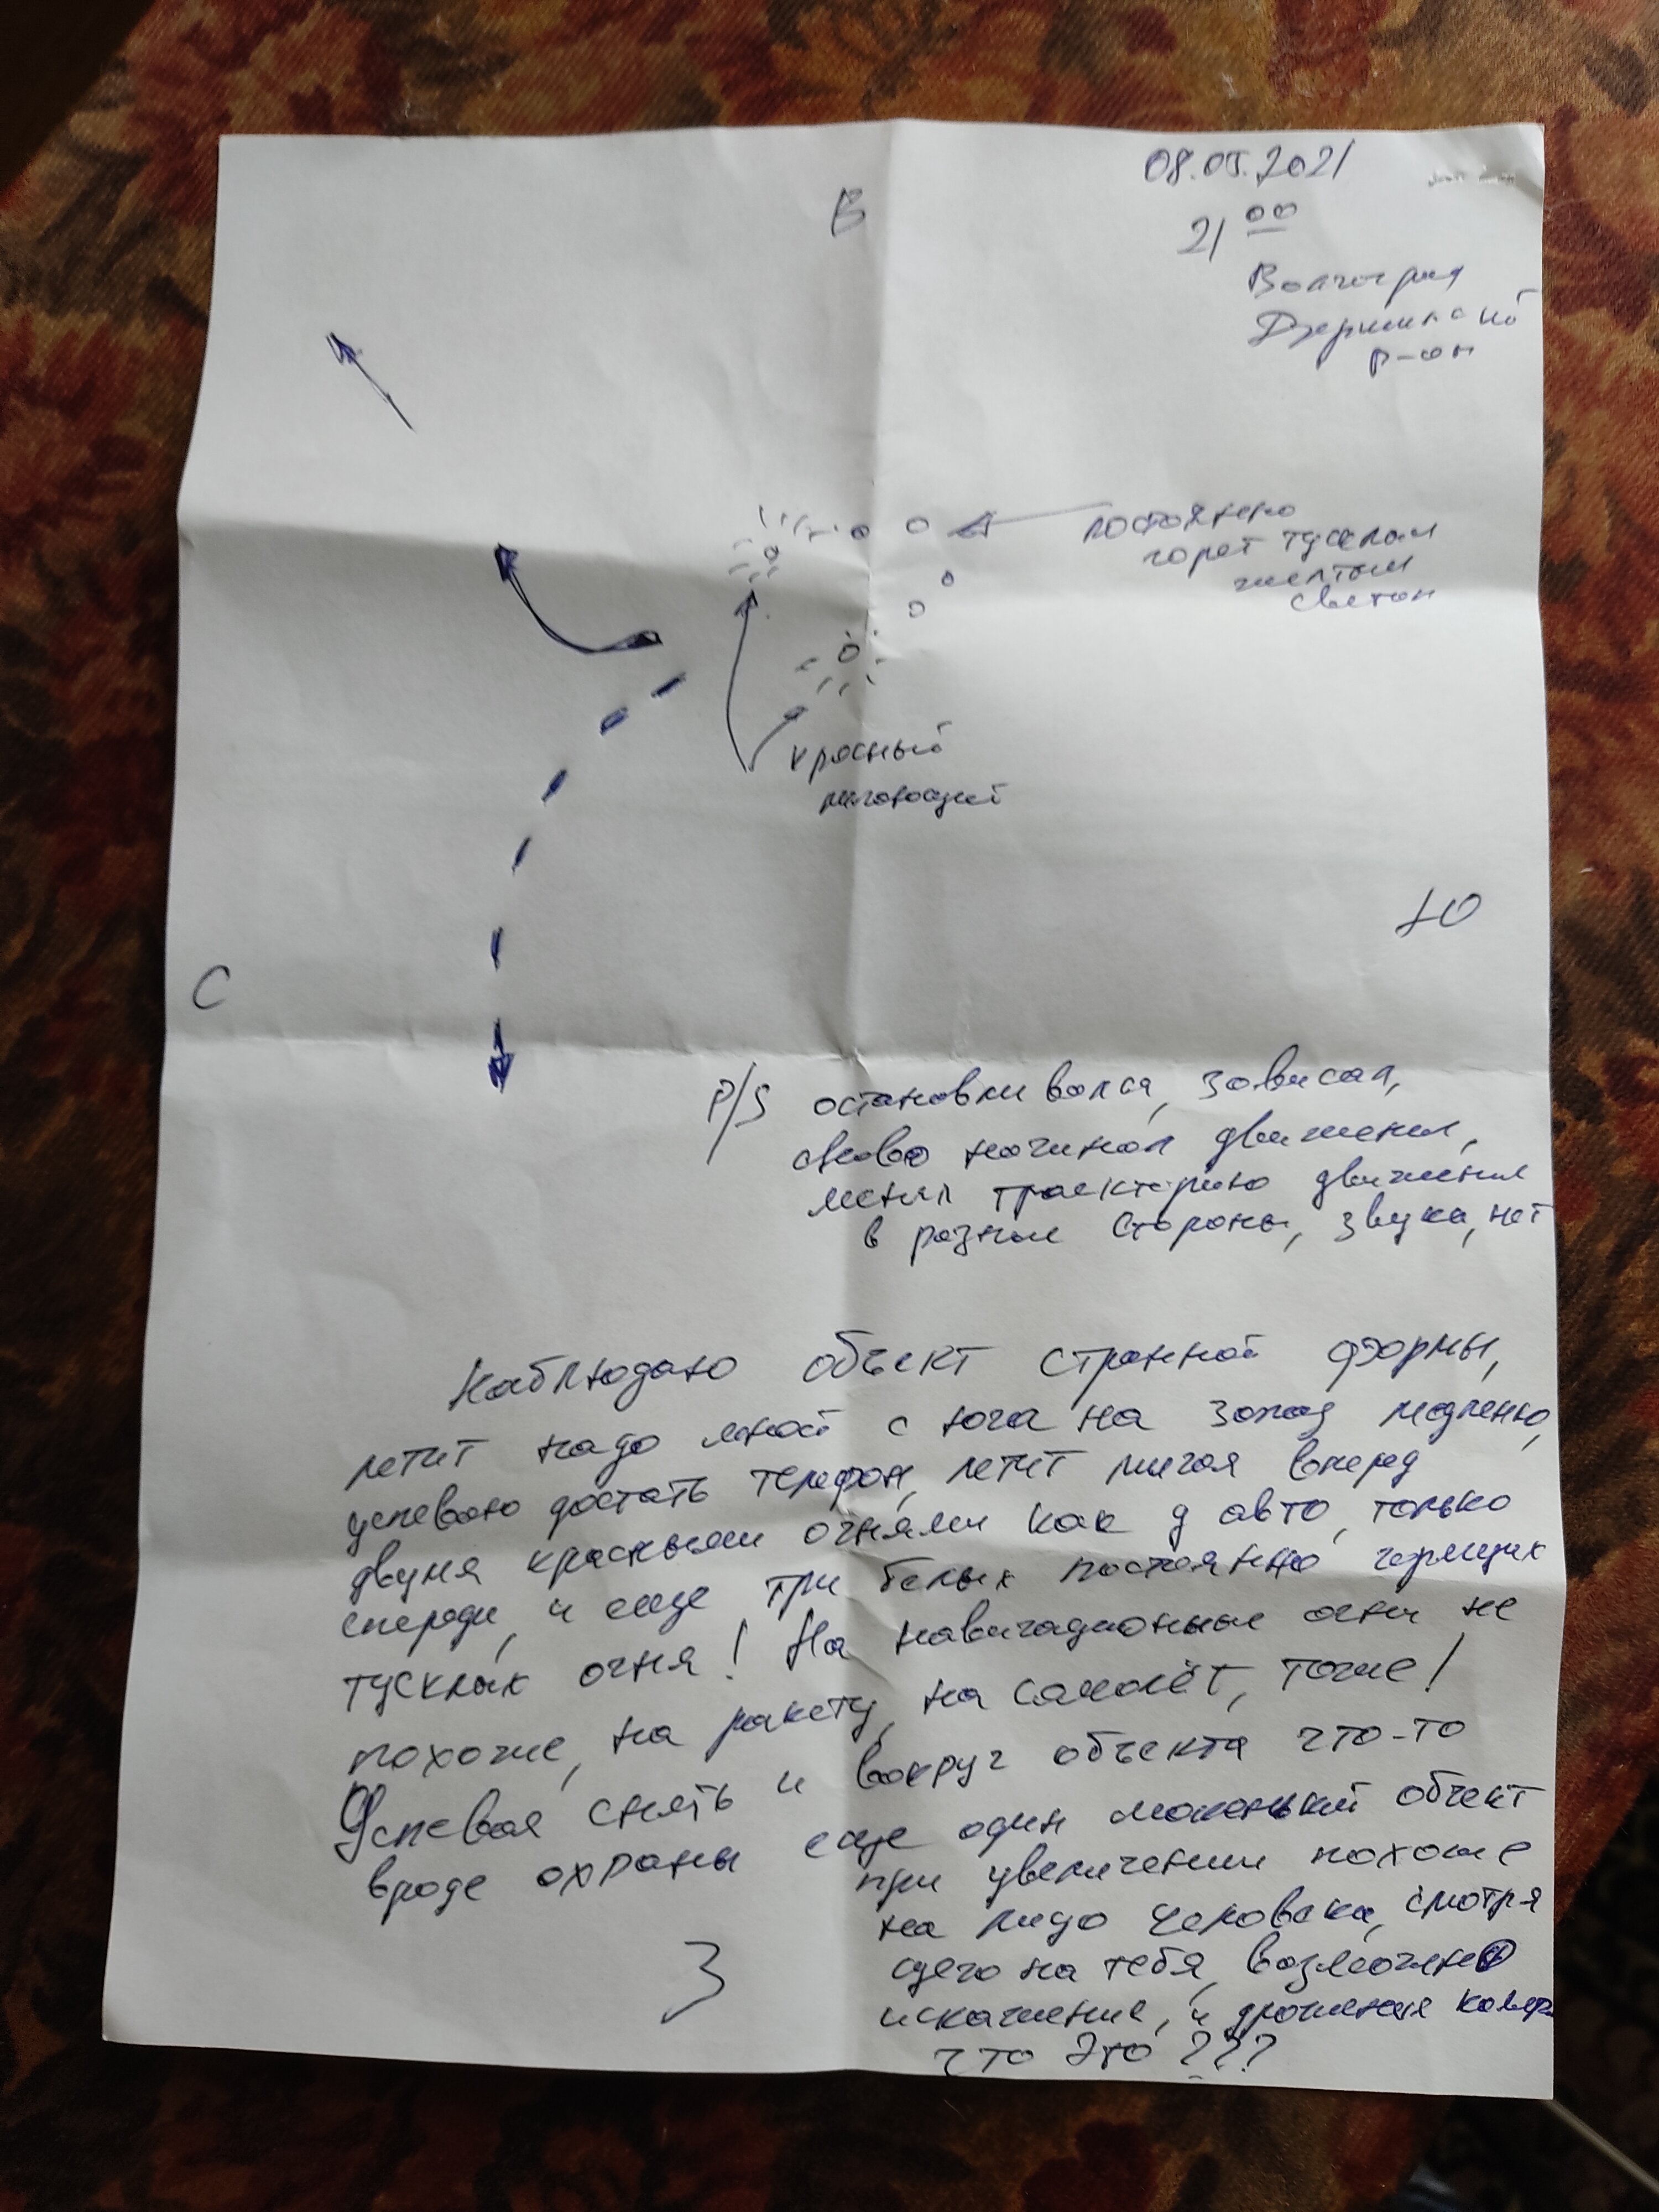 08.05.2021
21 00
Волгоград
Дзержинский
р-он
В
постоянно
горят тусклым
желтым
светом
красный
мигающий
Ю
С
P/S останавливался, зависал,
снова начинал движения,
менял траекторию движения
в разные стороны, звука, нет
Наблюдаю объект странной формы,
летит надо мной с юга на запад медленно,
успеваю достать телефон, летит мигая вперед
двумя красными огнями как у авто, только
спереди, и еще три белых постоянно горящих
тусклых огня! На навигационные огни не
похоже, на ракету, на самолёт, тоже!
Успевая снять и вокруг объекта что-то
вроде охраны еще один маленький объект
при увеличении похоже
на лицо человека, смотря
щего на тебя, возможно
искажение, и дрожения камеры
что это ???
З